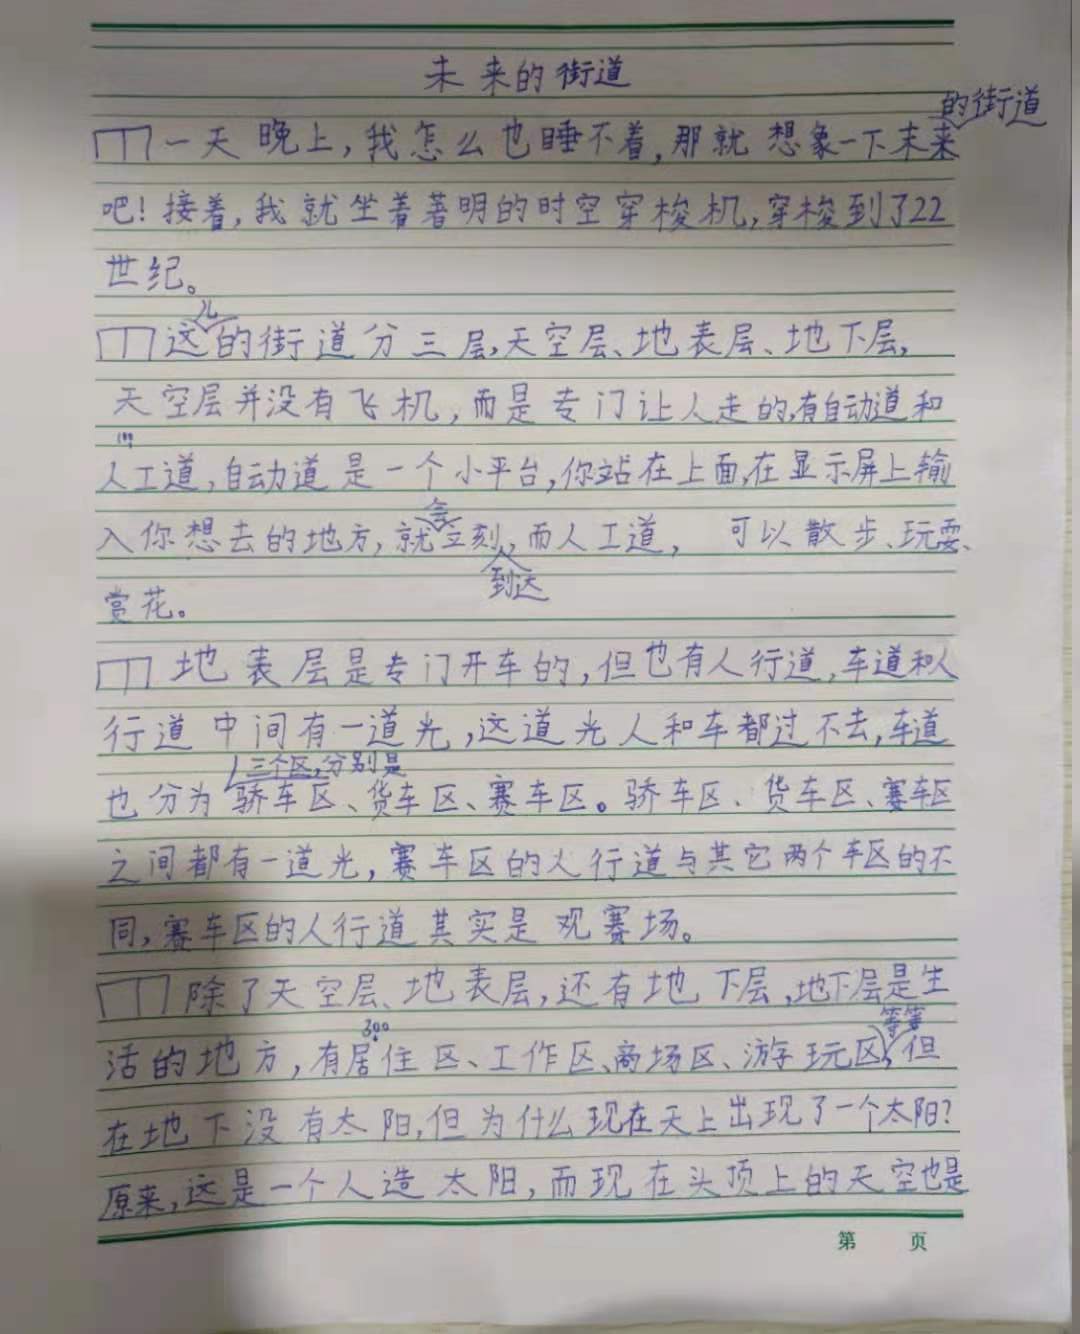 未来的街道
的街道
一天晚上，我怎么也睡不着，那就想象一下未来
吧！接着，我就坐着著明的时空穿梭机，穿梭到了22
世纪。
儿
这的街道分三层，天空层、地表层、地下层，
天空层并没有飞机，而是专门让人走的，有自动道和
100
人工道，自动道是一个小平台，你站在上面，在显示屏上输
会
入你想去的地方，就立刻，而人工道，可以散步、玩耍、
到达
赏花。
地表层是专门开车的，但也有人行道，车道和人
行道中间有一道光，这道光人和车都过不去，车道
三个区，分别是
也分为轿车区、货车区、赛车区。骄车区、货车区、赛车区
之间都有一道光，赛车区的人行道与其它两个车区的不
同，赛车区的人行道其实是观赛场。
除了天空层、地表层，还有地下层，地下层是生
300
等等
活的地方，有居住区、工作区、商场区、游玩区，但
在地下没有太阳，但为什么现在天上出现了一个太阳？
原来，这是一个人造太阳，而现在头顶上的天空也是
第 页